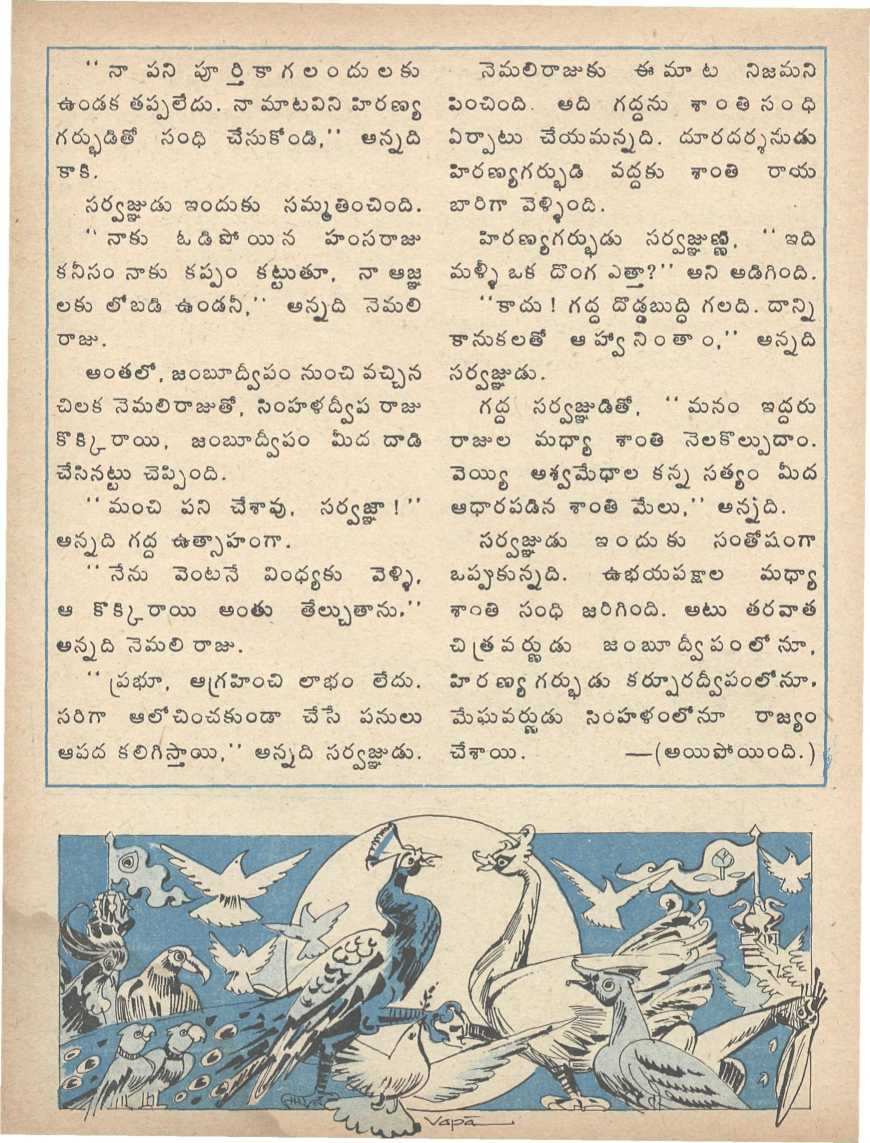 ‘‘ నా పని పూర్తికాగలందులకు
ఉండక తప్పలేదు. నా మాటవిని హిరణ్య
గర్భుడితో సంధి చేసుకోండి,’’ అన్నది
కాకి.
సర్వజ్ఞుడు ఇందుకు సమ్మతించింది.
‘‘ నాకు ఓడిపోయిన హంసరాజు
కనీసం నాకు కప్పం కట్టుతూ, నా ఆజ్ఞ
లకు లోబడి ఉండనీ,’’ అన్నది నెమలి
రాజు.
అంతలో, జంబూద్వీపం నుంచి వచ్చిన
చిలక నెమలిరాజుతో, సింహళద్వీప రాజు
కొక్కిరాయి, జంబూద్వీపం మీద దాడి
చేసినట్టు చెప్పింది.
‘‘మంచి పని చేశావు, సర్వజ్ఞా!’’
అన్నది గద్ద ఉత్సాహంగా.
‘‘నేను వెంటనే వింధ్యకు వెళ్ళి,
ఆ కొక్కిరాయి అంతు తేల్చుతాను,’’
అన్నది నెమలి రాజు.
‘‘ప్రభూ, ఆగ్రహించి లాభం లేదు.
సరిగా ఆలోచించకుండా చేసే పనులు
ఆపద కలిగిస్తాయి,’’ అన్నది సర్వజ్ఞుడు.
నెమలిరాజుకు ఈ మాట నిజమని
పించింది. అది గద్దను శాంతి సంధి
ఏర్పాటు చేయమన్నది. దూరదర్శనుడు
హిరణ్యగర్భుడి వద్దకు శాంతి రాయ
బారిగా వెళ్ళింది.
హిరణ్యగర్భుడు సర్వజ్ఞుణ్ణి, ‘‘ఇది
మళ్ళీ ఒక దొంగ ఎత్తా?’’ అని అడిగింది.
‘‘కాదు! గద్ద దొడ్డబుద్ధి గలది. దాన్ని
కానుకలతో ఆహ్వానింతాం,’’ అన్నది
సర్వజ్ఞుడు.
గద్ద సర్వజ్ఞుడితో, ‘‘మనం ఇద్దరు
రాజుల మధ్యా శాంతి నెలకొల్పుదాం.
వెయ్యి అశ్వమేధాల కన్న సత్యం మీద
ఆధారపడిన శాంతి మేలు,’’ అన్నది.
సర్వజ్ఞుడు ఇందుకు సంతోషంగా
ఒప్పుకున్నది. ఉభయపక్షాల మధ్యా
శాంతి సంధి జరిగింది. అటు తరవాత
చిత్రవర్ణుడు జంబూద్వీపంలోనూ,
హిరణ్యగర్భుడు కర్పూరద్వీపంలోనూ,
మేఘవర్ణుడు సింహళంలోనూ రాజ్యం
చేశాయి. —(అయిపోయింది.)
Vapā